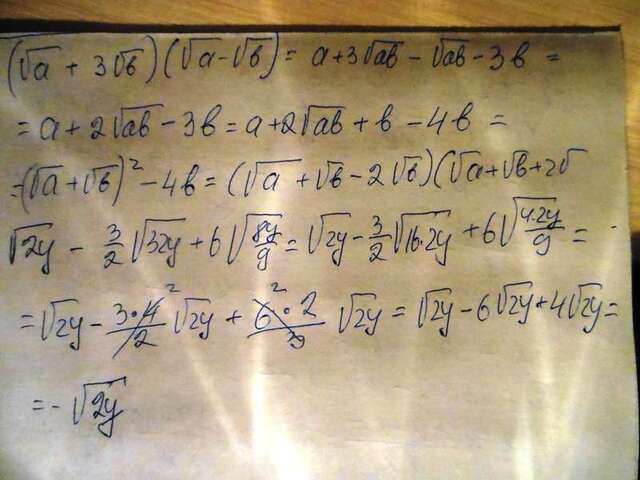 (√a + 3√b)(√a - √b) = a + 3√ab - √ab - 3b =
= a + 2√ab - 3b = a + 2√ab + b - 4b =
= (√a + √b)² - 4b = (√a + √b - 2√b)(√a + √b + 2√
√2y - 3/2 √32y + 6√8y/9 = √2y - 3/2 √16·2y + 6√4·2y/9 =
= √2y - 3·4/2 ² √2y + 6²·2/3 √2y = √2y - 6√2y + 4√2y =
= -√2y